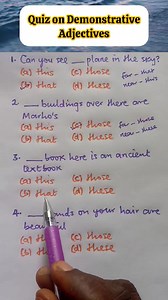 Quiz on Demonstrative
Adjectives
1. Can you see __ plane in the sky?
(a) this (c) those
(b) that (d) these
far - that
near - this
2. __ buildings over there are
Marho's
(a) this (c) those
(b) that (d) these
far - those
near - these
3. __ book here is an ancient
textbook
(a) this (c) those
(b) that (d) these
4. __ on your hair are
beautiful
(a) this (c) those
(b) (d) these